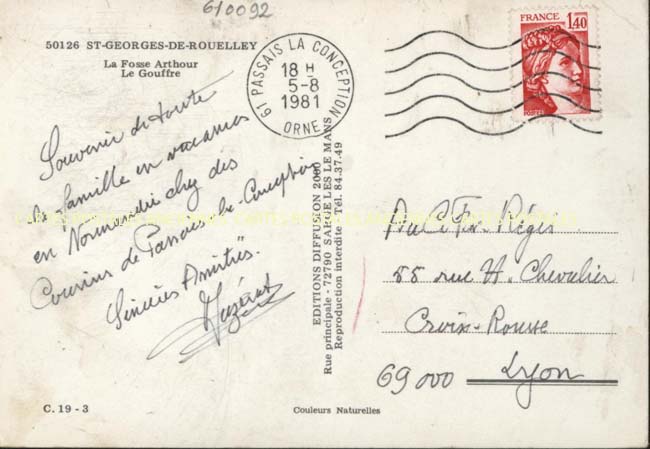 610092
50126 ST-GEORGES-DE-ROUELLEY
La Fosse Arthour
Le Gouffre
61 PASSAIS LA CONCEPTION
18 H
5-8
1981
ORNE
FRANCE
1,40
POSTES
Souvenir de toute
la famille en vacances
en Normandie chez des
Cousins de Passais-la-Conception
Sincères Amitiés.
EDITIONS DIFFUSION 2000
Rue principale - 72790 SARGE LES LE MANS
Reproduction interdite - Tél. 84.37.49
Régis
55 rue H. Chevalier
Croix-Rousse
69000 Lyon
C. 19 - 3
Couleurs Naturelles